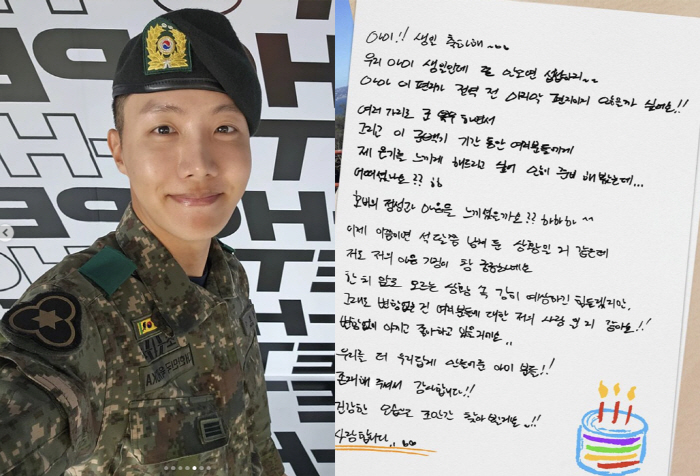 아미!! 생일 축하해~~
우리 아미 생일인데 글 안쓰면 섭섭하지~~
아마 이 편지가 전역 전 마지막 편지이지 않을까 싶어요!!
여러 가지로 군 복무 하면서
그리고 이 공백기 기간 동안 여러분들에게
제 온기를 느끼게 해드리고 싶어 준비 해봤는데...
어떠셨나요?? ㅎㅎ
호비의 정성과 마음을 느끼셨을까요?? 하하하 ^^
이제 이쯤이면 석 달쯤 남겨 둔 상황인 거 같은데
저도 저의 마음 가짐이 참 궁금하네요
한 치 앞도 모르는 상황 속 감히 예상하긴 힘들겠지만,
그래도 변함없는 건 여러분들에 대한 저의 사랑 거 같아요!!
변함없이 아끼고 좋아하고 있을거예요..
우리를 더 우리답게 만들어준 아미 분들!!
존재해 주셔서 감사합니다!!
건강한 모습으로 조만간 찾아 뵐게요..!!
사랑합니다..